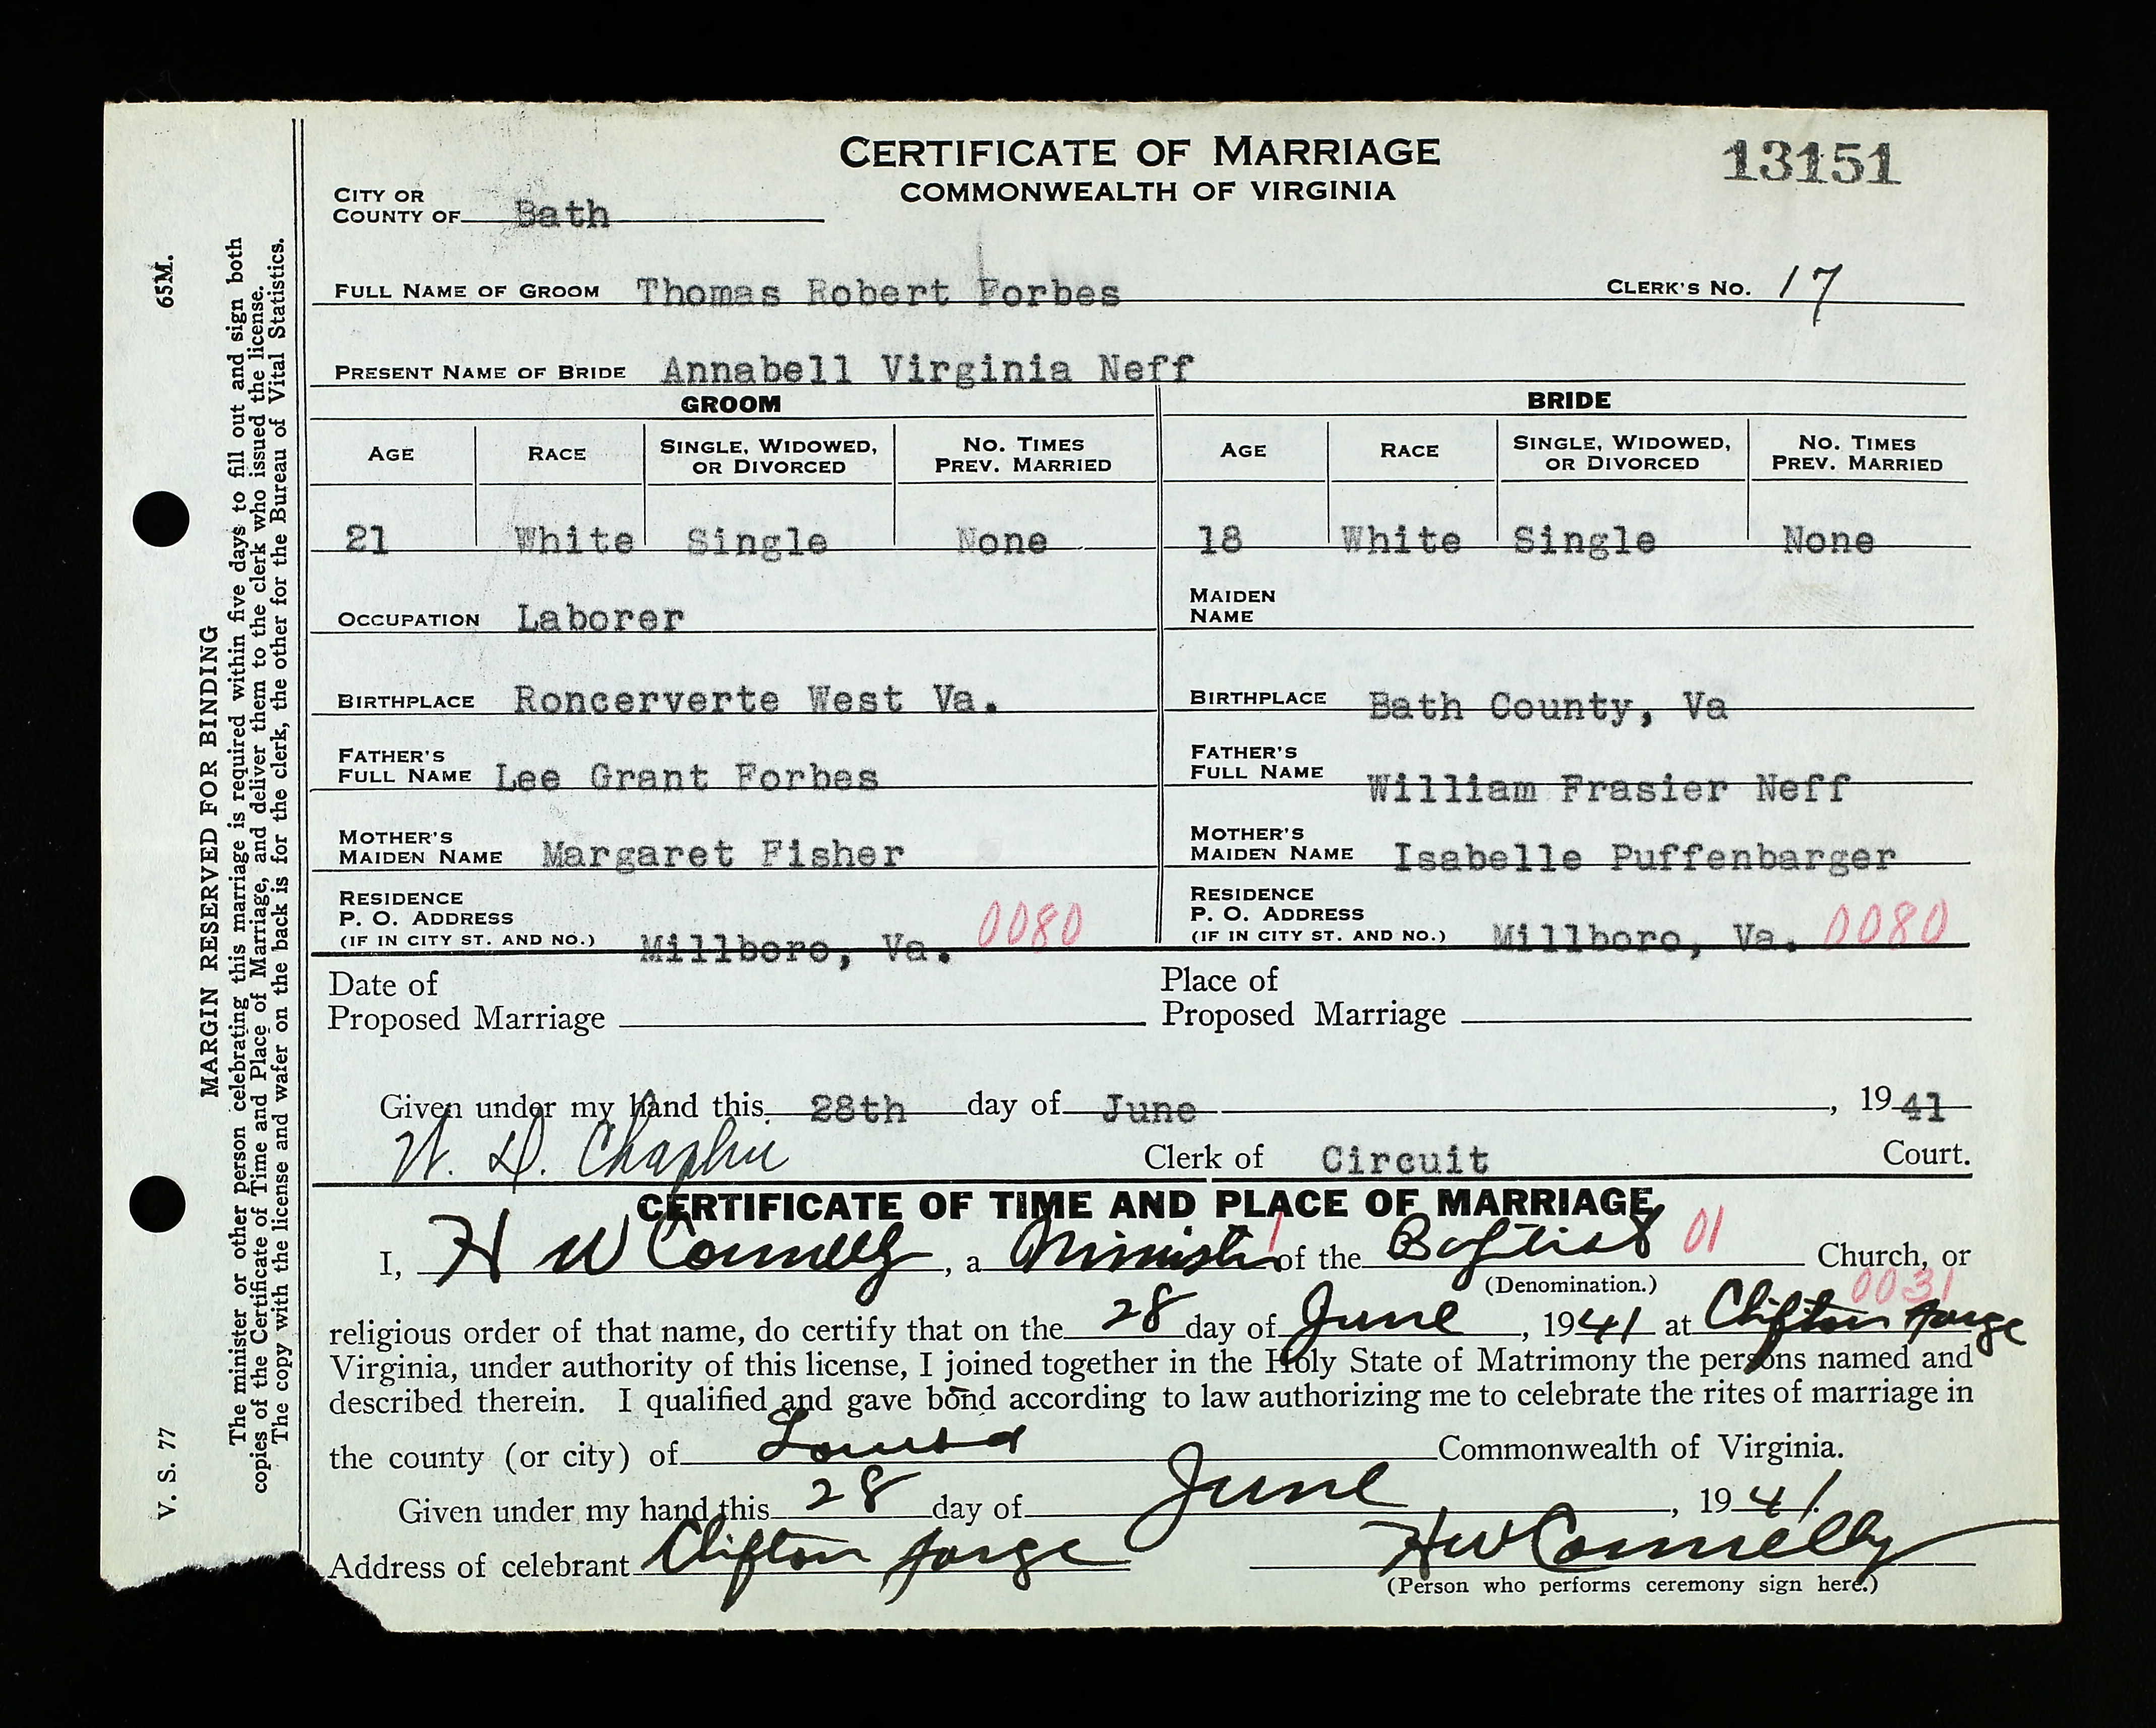 CERTIFICATE OF MARRIAGE
COMMONWEALTH OF VIRGINIA
13151
CITY OR
COUNTY OF Bath
FULL NAME OF GROOM Thomas Robert Forbes CLERK'S NO. 17
PRESENT NAME OF BRIDE Annabell Virginia Neff
GROOM BRIDE
AGE RACE SINGLE, WIDOWED, OR DIVORCED NO. TIMES PREV. MARRIED AGE RACE SINGLE, WIDOWED, OR DIVORCED NO. TIMES PREV. MARRIED
21 White Single None 18 White Single None
OCCUPATION Laborer MAIDEN NAME
BIRTHPLACE Roncerverte West Va. BIRTHPLACE Bath County, Va
FATHER'S FULL NAME Lee Grant Forbes FATHER'S FULL NAME William Frasier Neff
MOTHER'S MAIDEN NAME Margaret Fisher MOTHER'S MAIDEN NAME Isabelle Puffenbarger
RESIDENCE P. O. ADDRESS (IF IN CITY ST. AND NO.) Millboro, Va. 0080 RESIDENCE P. O. ADDRESS (IF IN CITY ST. AND NO.) Millboro, Va. 0080
Date of Proposed Marriage Place of Proposed Marriage
Given under my hand this 28th day of June, 1941
W. D. Clerk of Circuit Court.
CERTIFICATE OF TIME AND PLACE OF MARRIAGE
I, H W Connelly, a Minister 1 of the Baptist 01 Church, or
(Denomination.) 0031
religious order of that name, do certify that on the 28 day of June, 1941 at Clifton Forge
Virginia, under authority of this license, I joined together in the Holy State of Matrimony the persons named and
described therein. I qualified and gave bond according to law authorizing me to celebrate the rites of marriage in
the county (or city) of Louisa Commonwealth of Virginia.
Given under my hand this 28 day of June, 1941.
Address of celebrant Clifton Forge HW Connelly
(Person who performs ceremony sign here.)
V. S. 77 65M.
MARGIN RESERVED FOR BINDING
The minister or other person celebrating this marriage is required within five days to fill out and sign both
copies of the Certificate of Time and Place of Marriage, and deliver them to the clerk who issued the license.
The copy with the license and wafer on the back is for the clerk, the other for the Bureau of Vital Statistics.